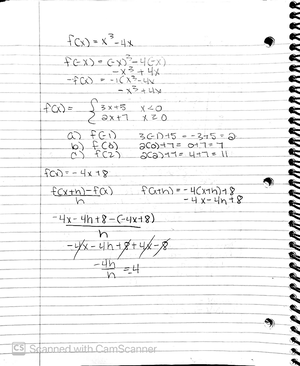 f(x) = x³ - 4x
f(-x) = (-x)³ - 4(-x)
-x³ + 4x
-f(x) = -1(x³ - 4x)
-x³ + 4x
f(x) = { 3x+5 x<0
2x+7 x≥0
a) f(-1) 3(-1)+5 = -3+5 = 2
b) f(0) 2(0)+7 = 0+7 = 7
c) f(2) 2(2)+7 = 4+7 = 11
f(x) = -4x+8
f(x+h) - f(x) f(x+h) = -4(x+h)+8
h -4x-4h+8
-4x-4h+8-(-4x+8)
h
-4x-4h+8+4x-8
-4h = -4
h
CS Scanned with CamScanner